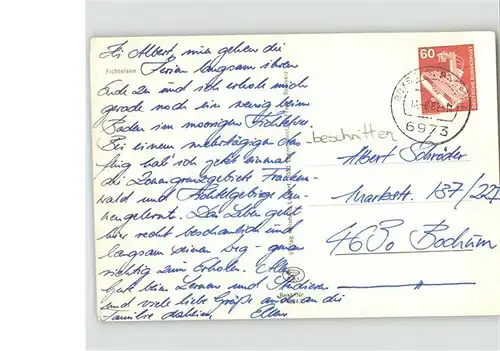 Fichtelsee
Hi Albert, mir gehen die
Ferien langsam ihrem
Ende zu und ich erhole mich
gerade noch ein wenig beim
Baden im moorigen Fichtelsee.
Bei einem mehrtägigen Aus-
flug hab' ich jetzt einmal
die Zonengrenzgebiete Franken-
wald und Fichtelgebirge ken-
nengelernt. Das Leben geht
hier recht beschaulich und
langsam seinen Weg - genau
richtig zum Erholen. Alles
Gute beim Lernen und Studieren
und viele liebe Grüße an die
Familie
60
DEUTSCHE BUNDESPOST
6973
beschritten
Albert Schröder
Marktstr. 137/227
4630 Bochum
Best.-Nr.